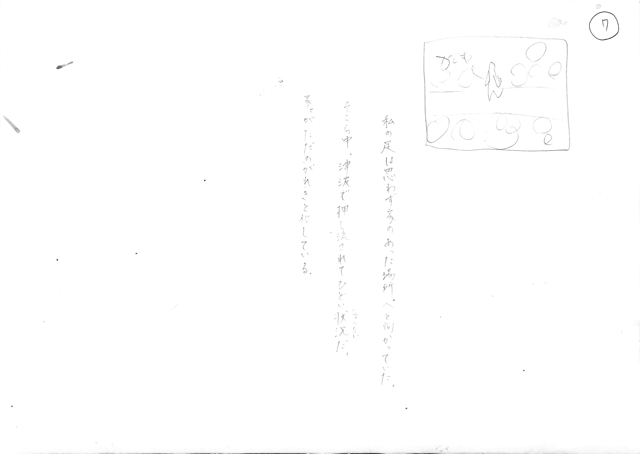 7
がれき
私の足は思わず家のあった場所へと向かっていた。
そこら中、津波で押し流されてひどい状況だ。
家がただのがれきと化している。